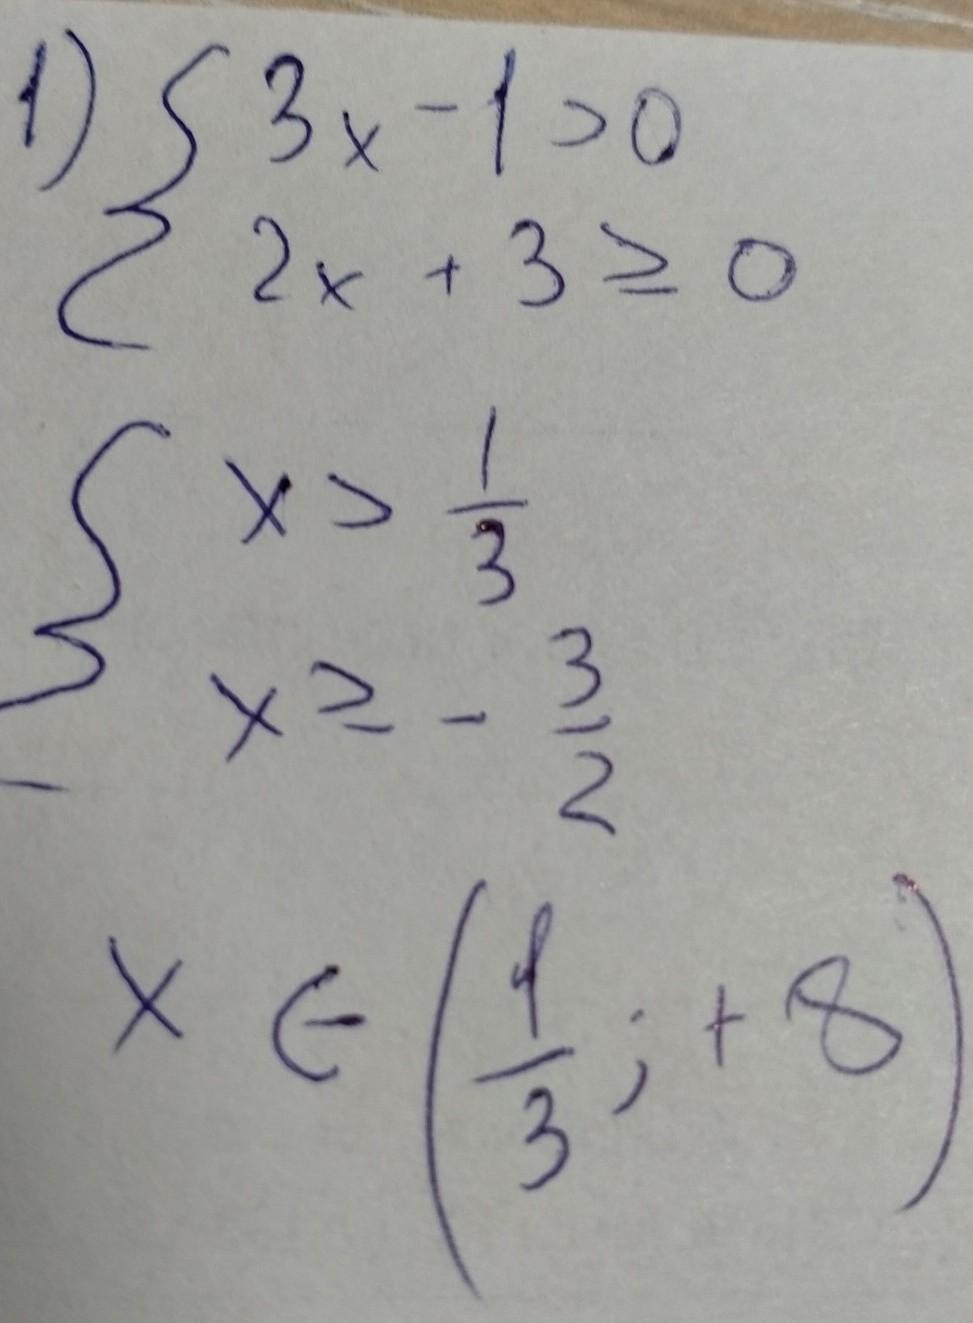 1) { 3x - 1 > 0
2x + 3 ≥ 0
{ x > 1/3
x ≥ - 3/2
x ∈ (1/3 ; + ∞)